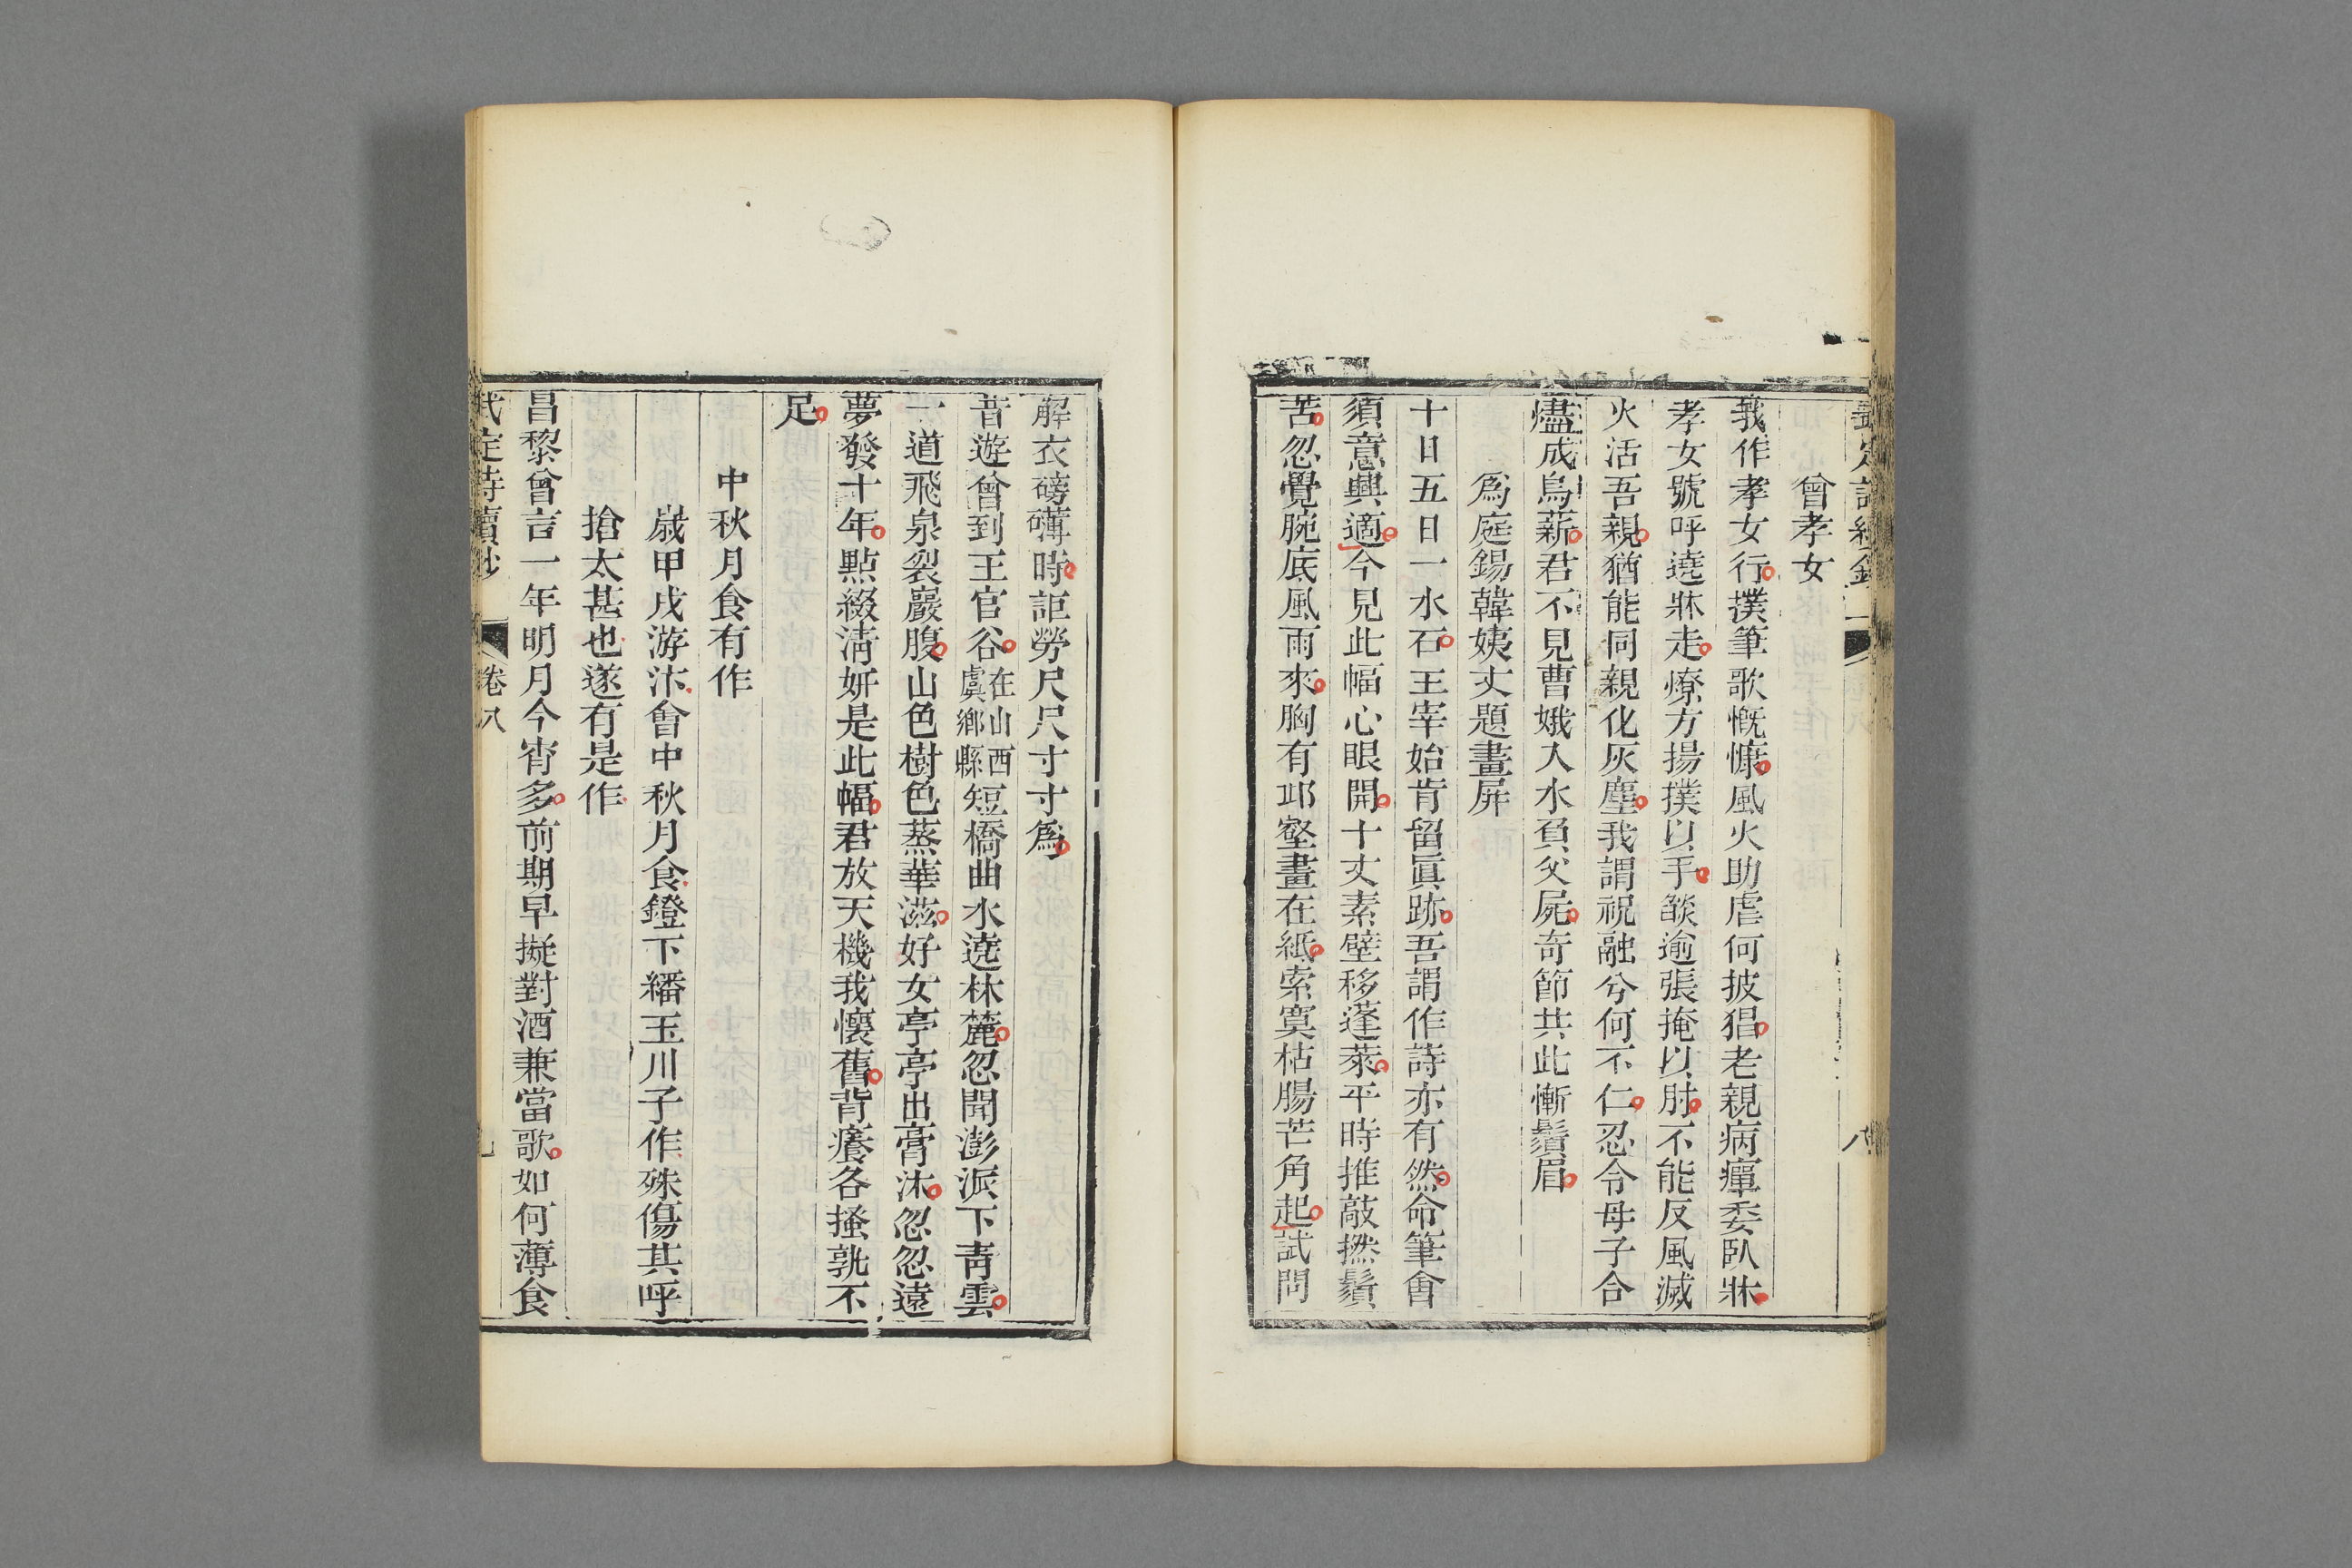 曾孝女
我作孝女行撲筆歌慨慷風火助虐何披猖老親病癉委臥牀
孝女號呼遶牀走燎方揚撲以手燄逾張掩以肘不能反風滅
火活吾親猶能同親化灰塵我謂祝融兮何不仁忍令母子合
燼成烏薪君不見曹娥入水負父屍奇節共此慚鬚眉
爲庭錫韓姨丈題畫屏
十日五日一水石王宰始肯留眞跡吾謂作詩亦有然命筆會
須意興適今見此幅心眼開十丈素壁移蓬萊平時推敲撚鬚
苦忽覺腕底風雨來胸有邱壑畫在紙索寞枯腸芒角起試問
解衣磅礴時詎勞尺尺寸寸爲
昔遊曾到王官谷在山西虞鄉縣短橋曲水遶林麓忽聞澎派下靑雲
一道飛泉裂巖腹山色樹色蒸華滋好女亭亭出膏沐忽忽遠
夢發十年點綴淸妍是此幅君放天機我懷舊背癢各搔孰不
足
中秋月食有作
歲甲戌游汴會中秋月食鐙下繙玉川子作殊傷其呼
搶太甚也遂有是作
昌黎曾言一年明月今宵多前期早擬對酒兼當歌如何薄食
卷八